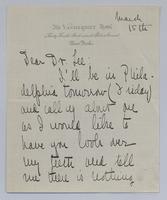 The Vanderbilt Hotel
Thirty Fourth Street east at Park Avenue
New York
March
15th
Dear Dr. Lee:
I'll be in Phila-
delphia tomorrow Friday
and all of about one
as I would like to
have you look over
my teeth and tell
me there is nothing